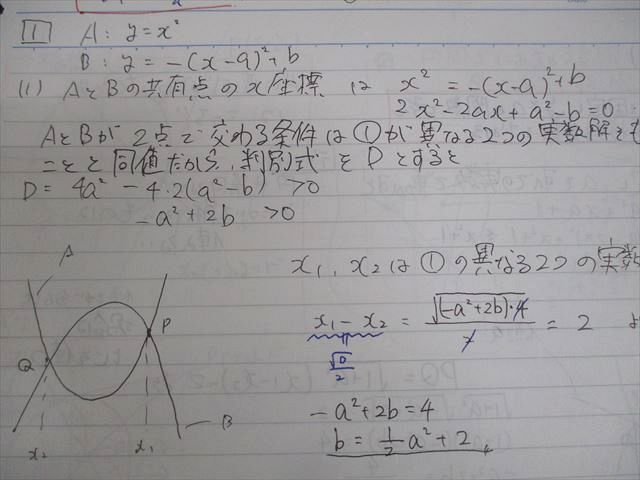 1 A: y=x²
B: y=-(x-a)²+b
(1) AとBの共有点のx座標は x²=-(x-a)²+b
2x²-2ax+a²-b=0
AとBが2点で交わる条件は①が異なる2つの実数解をも
ことと同値だから、判別式をDとすると
D= 4a²-4・2(a²-b) >0
-a²+2b >0
x₁, x₂は①の異なる2つの実数
A
P
Q
B
x₂ x₁
x₁-x₂ = = 2
-a²+2b=4
b=1/2a²+2